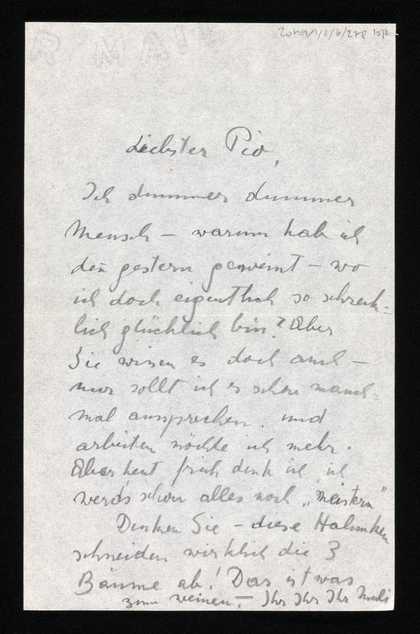 Liebster Pio,
Ich dummer dummer
Mensch – warum hab ich
den gestern geweint – wo
ich doch eigentlich so schreck-
lich glücklich bin? Aber
Sie wissen es doch auch –
nur sollt ich es schon manch-
mal aussprechen. und
arbeiten möchte ich mehr.
Aber heut früh denk ich, ich
werd's schon alles noch „meistern"
Denken Sie – diese Halunken
schneiden wirklich die 3
Bäume ab! Das ist was
zum weinen. – Ihr Ihr Ihr